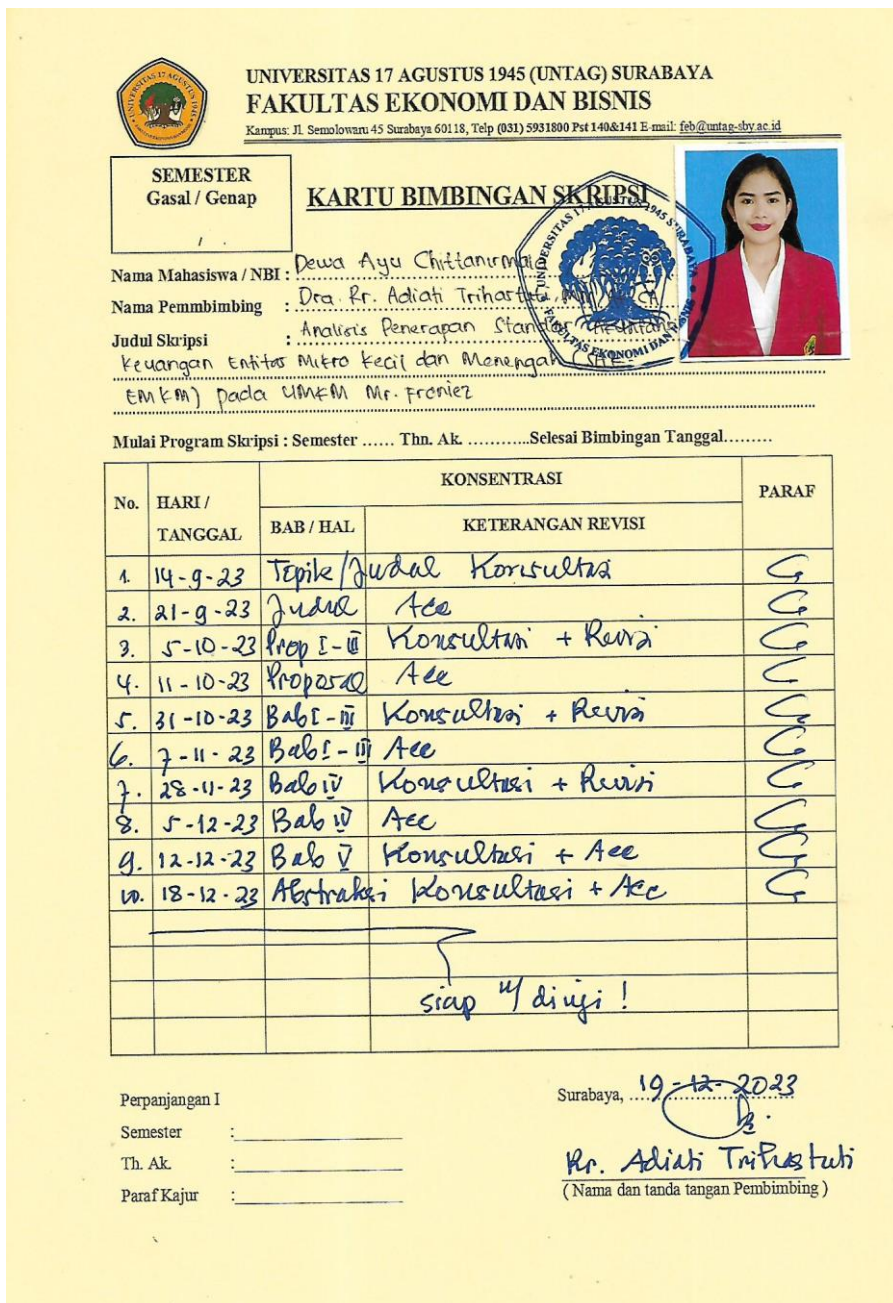 UNIVERSITAS 17 AGUSTUS 1945 (UNTAG) SURABAYA
FAKULTAS EKONOMI DAN BISNIS
Kampus: Jl. Semolowaru 45 Surabaya 60118, Telp (031) 5931800 Pst 140&141 E-mail: feb@untag-sby.ac.id
SEMESTER
Gasal / Genap
/
KARTU BIMBINGAN SKRIPSI
UNIVERSITAS 17 AGUSTUS 1945 SURABAYA
FAKULTAS EKONOMI DAN BISNIS
Nama Mahasiswa / NBI : Dewa Ayu Chittanirmala
Nama Pemmbimbing : Dra. Rr. Adiati Trihastuti, MM
Judul Skripsi : Analisis Penerapan Standar Akuntansi
Keuangan Entitas Mikro Kecil dan Menengah (SAK
EMKM) pada UMKM Mr. Froniez
Mulai Program Skripsi : Semester ...... Thn. Ak. ............Selesai Bimbingan Tanggal.........
No. HARI / TANGGAL KONSENTRASI PARAF
BAB / HAL KETERANGAN REVISI
1. 14-9-23 Topik/Judul Konsultasi
2. 21-9-23 Judul Acc
3. 5-10-23 Prop I-III Konsultasi + Revisi
4. 11-10-23 Proposal Acc
5. 31-10-23 Bab I-III Konsultasi + Revisi
6. 7-11-23 Bab I-III Acc
7. 28-11-23 Bab IV Konsultasi + Revisi
8. 5-12-23 Bab IV Acc
9. 12-12-23 Bab V Konsultasi + Acc
10. 18-12-23 Abstraksi Konsultasi + Acc
siap u/ diuji !
Perpanjangan I
Semester :
Th. Ak. :
Paraf Kajur :
Surabaya, 19-12-2023
Rr. Adiati Trihastuti
( Nama dan tanda tangan Pembimbing )